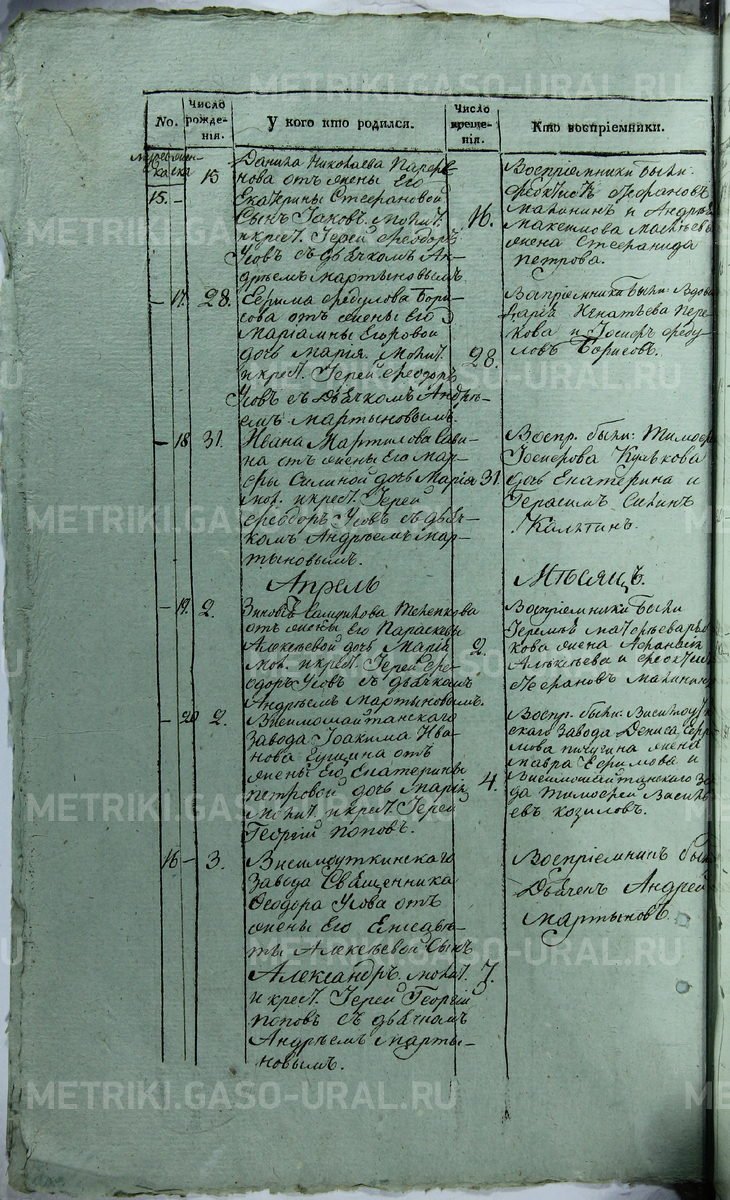 METRIKI.GASO-URAL.RU
No.
Число рожде-
нія.
У кого кто родился.
Число
креще-
нія.
Кто воспріемники.
15.
15
Данила Николаева
нова отъ жены Его
Екатерины Стефановой
Сынъ Іаковъ. Молит.
и крест. Іерей Ѳеодоръ
Усовъ съ дьячкомъ Ан-
дрѣемъ Мартыновымъ
16.
Воспріемники были:
Стефановъ
Малининъ и Андрѣя
Максимова
жена Стефанида
Петрова.
17.
28.
Ефима Федулова Бори-
сова отъ жены Его
Маріамны Егоровой
дочь Марія. Молит.
и крест. Іерей Ѳеодоръ
Усовъ съ Дьячкомъ Андрѣ-
емъ Мартыновымъ.
28.
Воспріемники были: Вдова
Дарья Игнатьева
кова и Іосифъ Феду-
ловъ Борисовъ.
18
31.
Ивана
на отъ жены Его Мар-
фы Силиной дочь Марія
Мол. и крест. Іерей
Ѳеодоръ Усовъ съ дьяч-
комъ Андрѣемъ Мар-
тыновымъ.
31.
Воспр. были: Тимофея
Іосифова Кулькова
дочь Екатерина и
Герасимъ Силинъ
Апрель
Мѣсяцъ.
19.
2.
отъ жены Его Параскевы
Алексѣевой дочь Марія
Мол. и крест. Іерей Ѳео-
доръ Усовъ съ дьячкомъ
Андрѣемъ Мартыновымъ.
2.
Воспріемники были
кова жена
Стефановъ Малининъ
20
2.
Висимошайтанскаго
завода Іоакима Ива-
нова отъ
жены Его Екатерины
Петровой дочь Марія
Молит. и крест. Іерей
Георгій Поповъ.
4.
Воспр. были: Висимоут
скаго Завода Дениса
жена
Мавра Ефимова и
Висимошайтанскаго Заво
да Тимофей Василь
евъ Козиловъ.
16
3.
Висимоуткинскаго
Завода Священника
Ѳеодора Усова отъ
жены Его Елисаве-
ты Алексѣевой Сынъ
Александръ. Молит.
и крест. Іерей Георгій
Поповъ съ дьячкомъ
Андрѣемъ Марты-
новымъ.
7.
Воспріемникъ былъ
Дьячекъ Андрей
Мартыновъ.